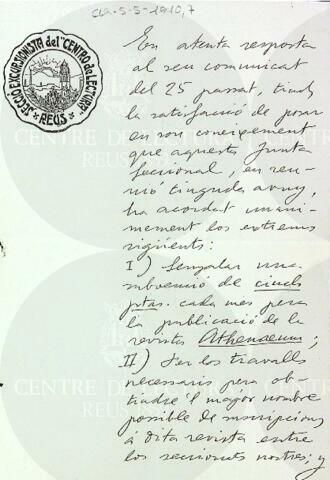 CLA-5-5-1910,7
SECCIÓ EXCURSIONISTA del "CENTRO de LECTURA"
REUS
En atenta resposta
al seu comunicat
del 25 passat, tinch
la satisfacció de posar
en son coneixement
que aquesta Junta
Seccional, en reu-
nió tinguda avuy,
ha acordat unàni-
mement los extrems
següents:
I) Senyalar una
subvenció de cinch
ptas. cada mes pera
la publicació de la
revista Athenaeum;
II) Fer los travalls
necessaris pera ob-
tindre 'l major nombre
possible de suscripcions
á dita revista entre
los seccionats nostres; y
CENTRE DE LECTURA
REUS 1859
CENTRE DE LECTURA
REUS 1859